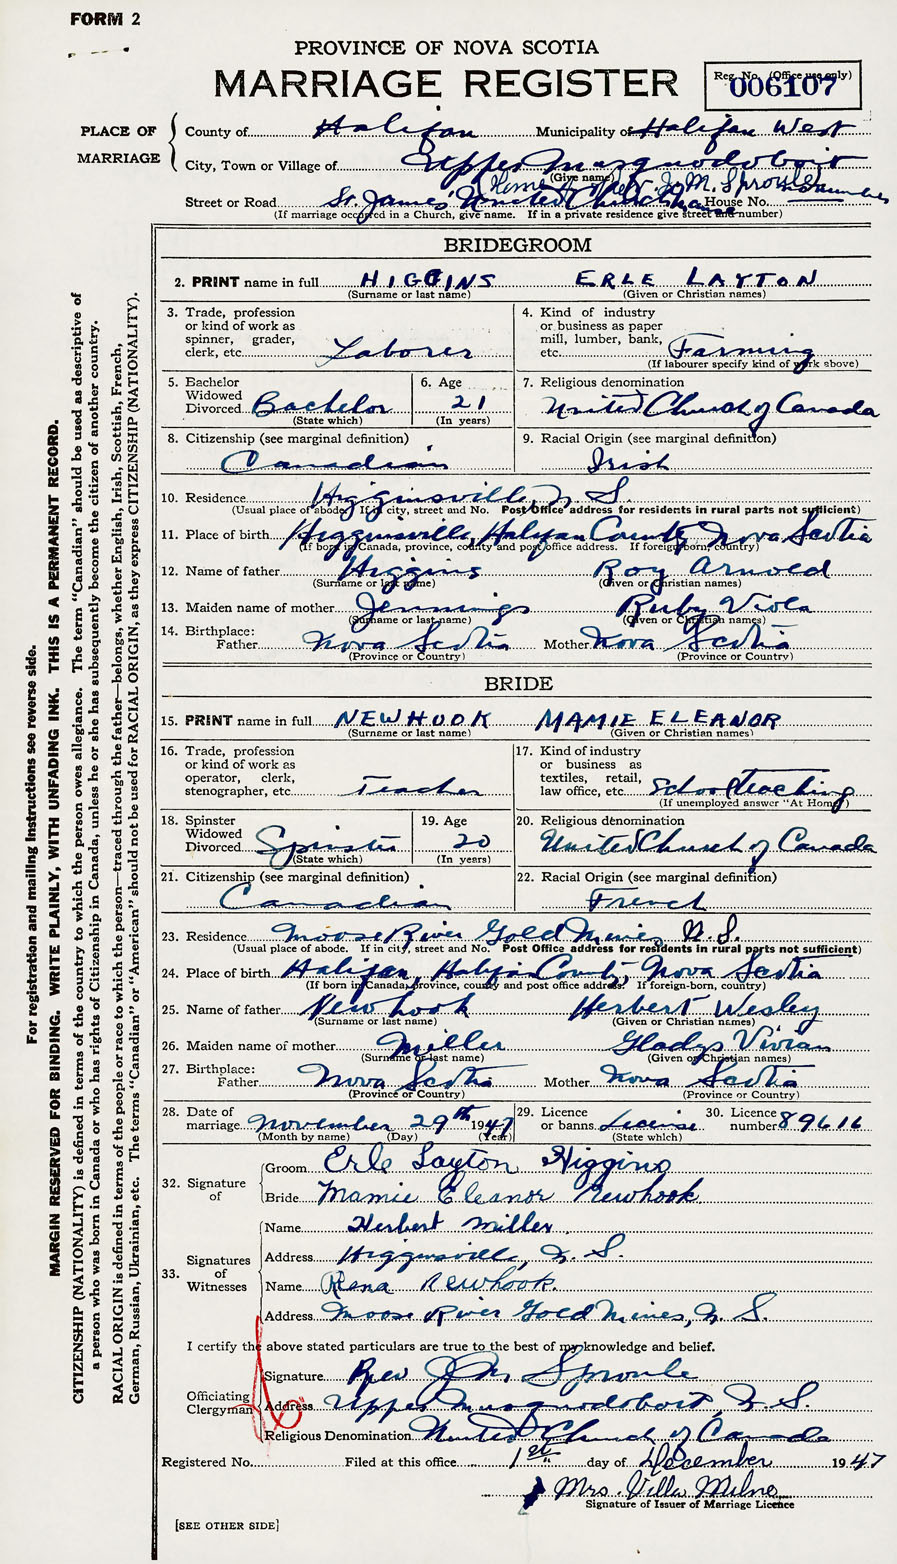 FORM 2
PROVINCE OF NOVA SCOTIA
MARRIAGE REGISTER
Reg. No. (Office use only)
006107
PLACE OF MARRIAGE
County of Halifax Municipality of Halifax West
City, Town or Village of Upper Musquodoboit
(Give name)
Street or Road St. James' United Church House No.
(Home of Rev. J. M. Sproule)
(If marriage occurred in a Church, give name. If in a private residence give street and number)
BRIDEGROOM
2. PRINT name in full HIGGINS ERLE LAYTON
(Surname or last name) (Given or Christian names)
3. Trade, profession or kind of work as spinner, grader, clerk, etc. Laborer
4. Kind of industry or business as paper mill, lumber, bank, etc. Farming
(If labourer specify kind of work above)
5. Bachelor Widowed Divorced Bachelor
(State which)
6. Age 21
(In years)
7. Religious denomination
United Church of Canada
8. Citizenship (see marginal definition)
Canadian
9. Racial Origin (see marginal definition)
Irish
10. Residence Higginsville, N. S.
(Usual place of abode. If in city, street and No. Post Office address for residents in rural parts not sufficient)
11. Place of birth Higginsville, Halifax County, Nova Scotia
(If born in Canada, province, county and post office address. If foreign-born, country)
12. Name of father Higgins Roy Arnold
(Surname or last name) (Given or Christian names)
13. Maiden name of mother Jennings Ruby Viola
(Surname or last name) (Given or Christian names)
14. Birthplace:
Father Nova Scotia Mother Nova Scotia
(Province or Country) (Province or Country)
BRIDE
15. PRINT name in full NEWHOOK MAMIE ELEANOR
(Surname or last name) (Given or Christian names)
16. Trade, profession or kind of work as operator, clerk, stenographer, etc. Teacher
17. Kind of industry or business as textiles, retail, law office, etc. School Teaching
(If unemployed answer "At Home")
18. Spinster Widowed Divorced Spinster
(State which)
19. Age 20
(In years)
20. Religious denomination
United Church of Canada
21. Citizenship (see marginal definition)
Canadian
22. Racial Origin (see marginal definition)
French
23. Residence Moose River Gold Mines, N.S.
(Usual place of abode. If in city, street and No. Post Office address for residents in rural parts not sufficient)
24. Place of birth Halifax, Halifax County, Nova Scotia
(If born in Canada, province, county and post office address. If foreign-born, country)
25. Name of father Newhook Herbert Wesley
(Surname or last name) (Given or Christian names)
26. Maiden name of mother Miller Gladys Vivian
(Surname or last name) (Given or Christian names)
27. Birthplace:
Father Nova Scotia Mother Nova Scotia
(Province or Country) (Province or Country)
28. Date of marriage November 29th 1947
(Month by name) (Day) (Year)
29. Licence or banns License
(State which)
30. Licence number 89616
32. Signature of
Groom Erle Layton Higgins
Bride Mamie Eleanor Newhook
33. Signatures of Witnesses
Name Herbert Miller
Address Higginsville, N. S.
Name Rena Newhook.
Address Moose River Gold Mines, N. S.
I certify the above stated particulars are true to the best of my knowledge and belief.
Officiating Clergyman
Signature Rev J. M. Sproule
Address Upper Musquodoboit, N. S.
Religious Denomination United Church of Canada
Registered No. Filed at this office 1st day of December 1947
Mrs. Villa Milne
Signature of Issuer of Marriage Licence
[SEE OTHER SIDE]
For registration and mailing instructions see reverse side.
MARGIN RESERVED FOR BINDING. WRITE PLAINLY, WITH UNFADING INK. THIS IS A PERMANENT RECORD.
CITIZENSHIP (NATIONALITY) is defined in terms of the country to which the person owes allegiance. The term "Canadian" should be used as descriptive of
a person who was born in Canada or who has rights of Citizenship in Canada, unless he or she has subsequently become the citizen of another country.
RACIAL ORIGIN is defined in terms of the people or race to which the person—traced through the father—belongs, whether English, Irish, Scottish, French,
German, Russian, Ukrainian, etc. The terms "Canadian" or "American" should not be used for RACIAL ORIGIN, as they express CITIZENSHIP (NATIONALITY).